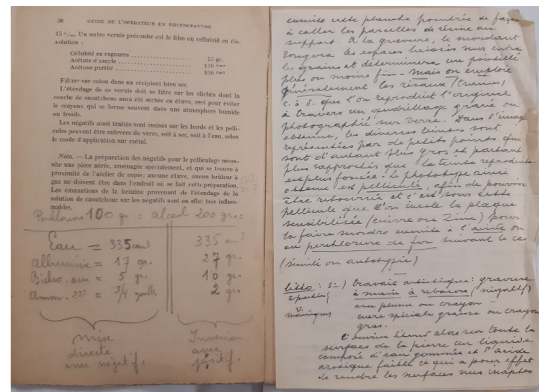 38 GUIDE DE L'OPÉRATEUR EN PHOTOGRAVURE
15 c/m³. Un autre vernis précombe est le film ou celluloïd en dis-
solution :
Celluloïd en rognures 25 gr.
Acétate d'amyle 120 cm³
Acétone purifié 100 cm³
Filtrer sur coton dans un récipient bien sec.
L'étendage de ce vernis doit se faire sur les clichés dont la
couche de caoutchouc aura été séchée au étuve, ceci pour éviter
le craquex qui se forme souvent dans une atmosphère humide
ou froide.
Les négatifs ainsi traités sont incisés sur les bords et les pelli-
cules peuvent être enlevées du verre, soit à sec, soit à l'eau, selon
le code d'application sur métal.
Nota. — La préparation des négatifs pour le pelliculage néces-
site une pièce aérée, aménagée spécialement, et qui se trouve à
proximité de l'atelier de copie; aucune étuve, aucun brûleur à
gaz ne doivent être dans l'endroit où se fait cette préparation.
Les émanations de la benzine provenant de l'étendage de la
solution de caoutchouc sur les négatifs sont en effet très inflam-
mables.
100 gr = alcool 200 gr.
Eau = 335 cm³ 335 cm³
Albumine = 17 gr. 27 gr.
Bichro. am = 5 gr. 10 gr.
Amon. 22° = 3/4 goutte 2 gr.
mise directe avec négatif.
Inversion avec positif.
ensuite cette planche poudrée de façon
à coller les parcelles de résine au
support. A la gravure, le mordant
rongera les espaces laissés nus entre
les grains et déterminera un pointillé
plus ou moins fin — mais on emploie
généralement les réseaux (trames)
c. à d. que l'on reproduit l'original
à travers un quadrillage gravé ou
photographié sur verre. Dans l'image
obtenue, les diverses teintes sont
représentées par de petits points qui
sont d'autant plus gros et partant
plus rapprochés que la teinte reproduite
est plus foncée. Le phototype ainsi
obtenu est pelliculé, afin de pouvoir
être retourné et c'est sous cette
pellicule que l'on insole la plaque
sensibilisée (cuivre ou zinc) pour
la faire mordre ensuite à l'acide ou
au perchlorure de fer suivant le cas
(simili ou autotypie)
litho : travail artistique : gravure
à main à rebours (négatif)
en plume ou crayon
encre spéciale grasse ou crayon
gras.
L'ouvrier étend alors sur toute la
surface de la pierre un liquide
composé d'eau gommée et l'acide
nitrique faible ce qui a pour effet
de rendre les surfaces nues inaptes